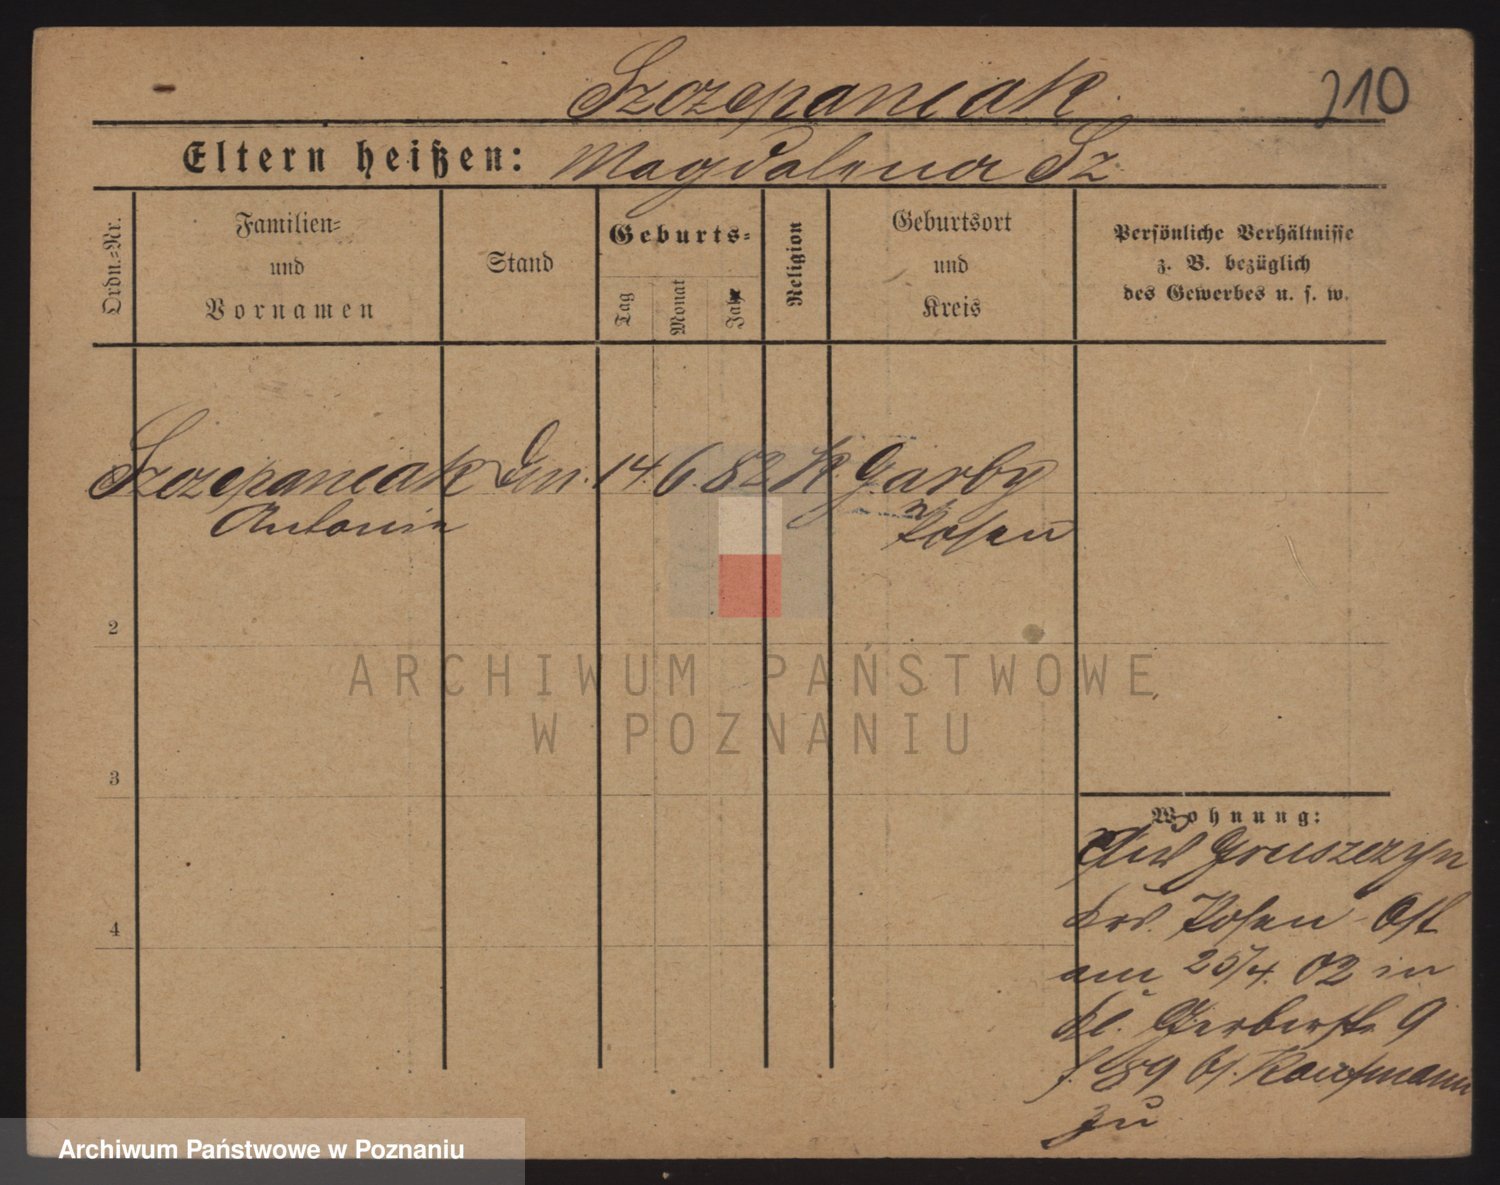 Szczepaniak
210
Eltern heißen: Magdalena Sz
Ordn.-Nr.
Familien-
und
Vornamen
Stand
Geburts-
Tag
Monat
Jahr
Religion
Geburtsort
und
Kreis
Persönliche Verhältnisse
z. B. bezüglich
des Gewerbes u. s. w.
Szczepaniak 14. 6. 82 K. Garby
Antonie Posen
2
ARCHIWUM PAŃSTWOWE
W POZNANIU
3
Wohnung:
Gruszczyn
4
Krs. Posen-Ost
am 25/4. 02 in
Kl. Gerberstr. 9
Kaufmann
zu
Archiwum Państwowe w Poznaniu